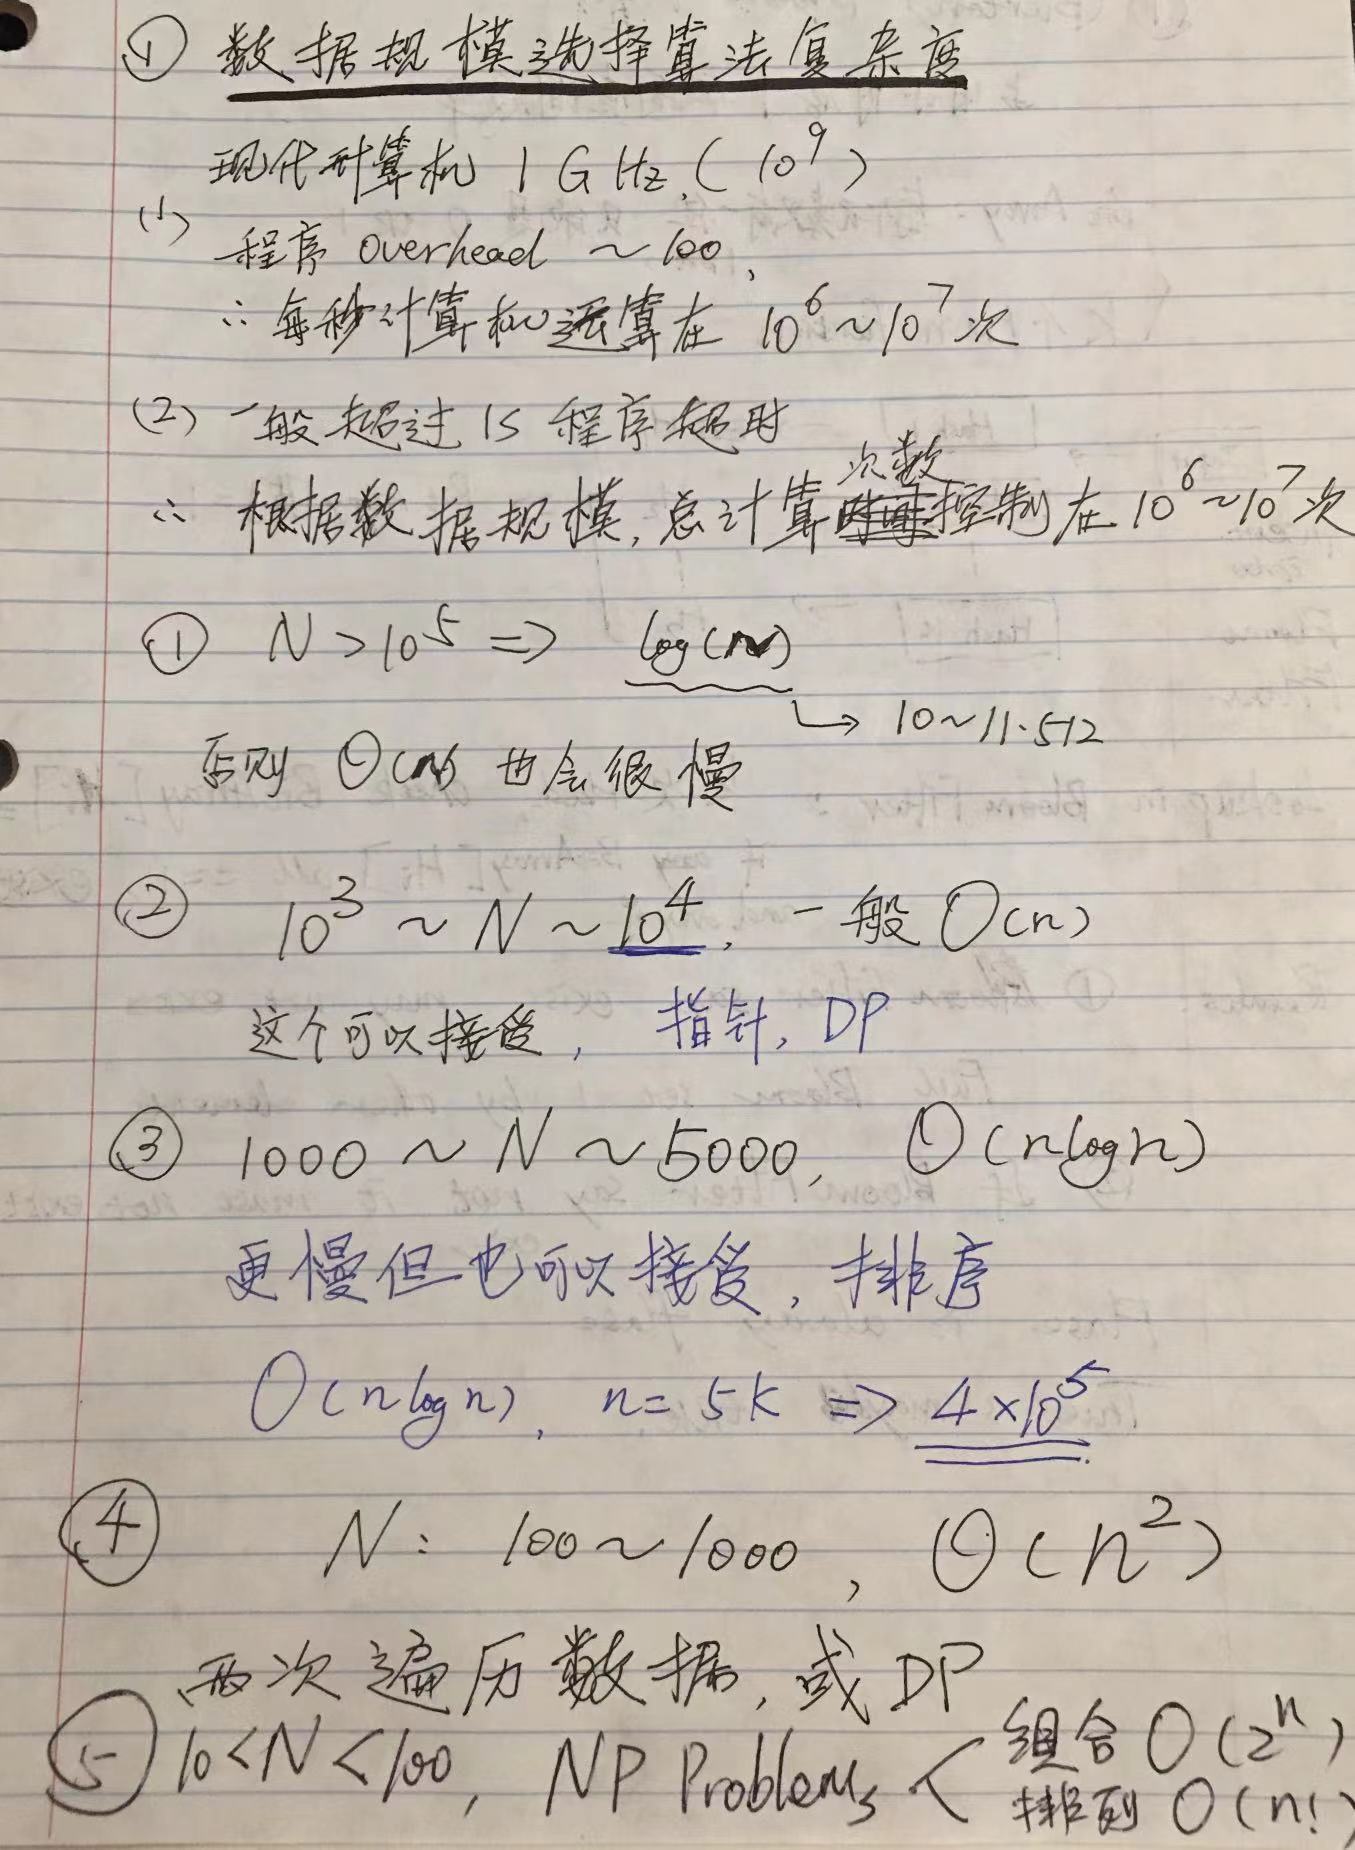 ① 数据规模选择算法复杂度
现代计算机 1 GHz, (10^9)
(1)
程序 overhead ~100,
∴ 每秒计算机运算在 10^6~10^7 次
(2) 一般超过 1s 程序超时
次数
∴ 根据数据规模, 总计算时间控制在 10^6~10^7 次
① N>10^5 => log(n)
↳ 10~11.512
否则 O(n) 也会很慢
② 10^3 ~ N ~ 10^4, 一般 O(n)
这个可以接受, 指针, DP
③ 1000 ~ N ~ 5000, O(nlogn)
更慢但也可以接受, 排序
O(nlogn), n= 5k => 4×10^5
④ N: 100~1000, O(n^2)
两次遍历数据, 或 DP
⑤ 10<N<100, NP Problems < 组合 O(2^n)
排列 O(n!)